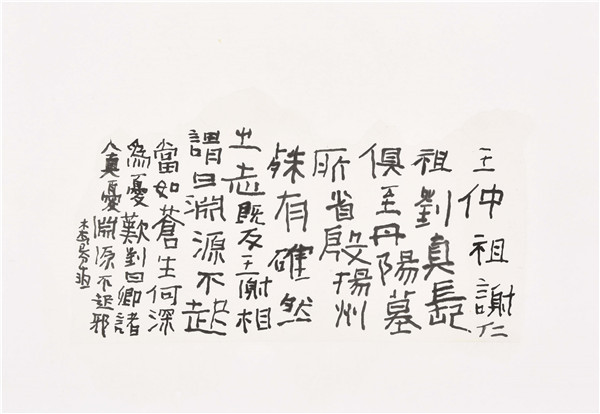 王仲祖謝仁
祖劉真長
俱至丹陽墓
所省殷揚州
殊有確然
之志既反王謝相
謂曰淵源不起
當如蒼生何深
為憂歎劉曰卿諸
人真憂淵源不起邪